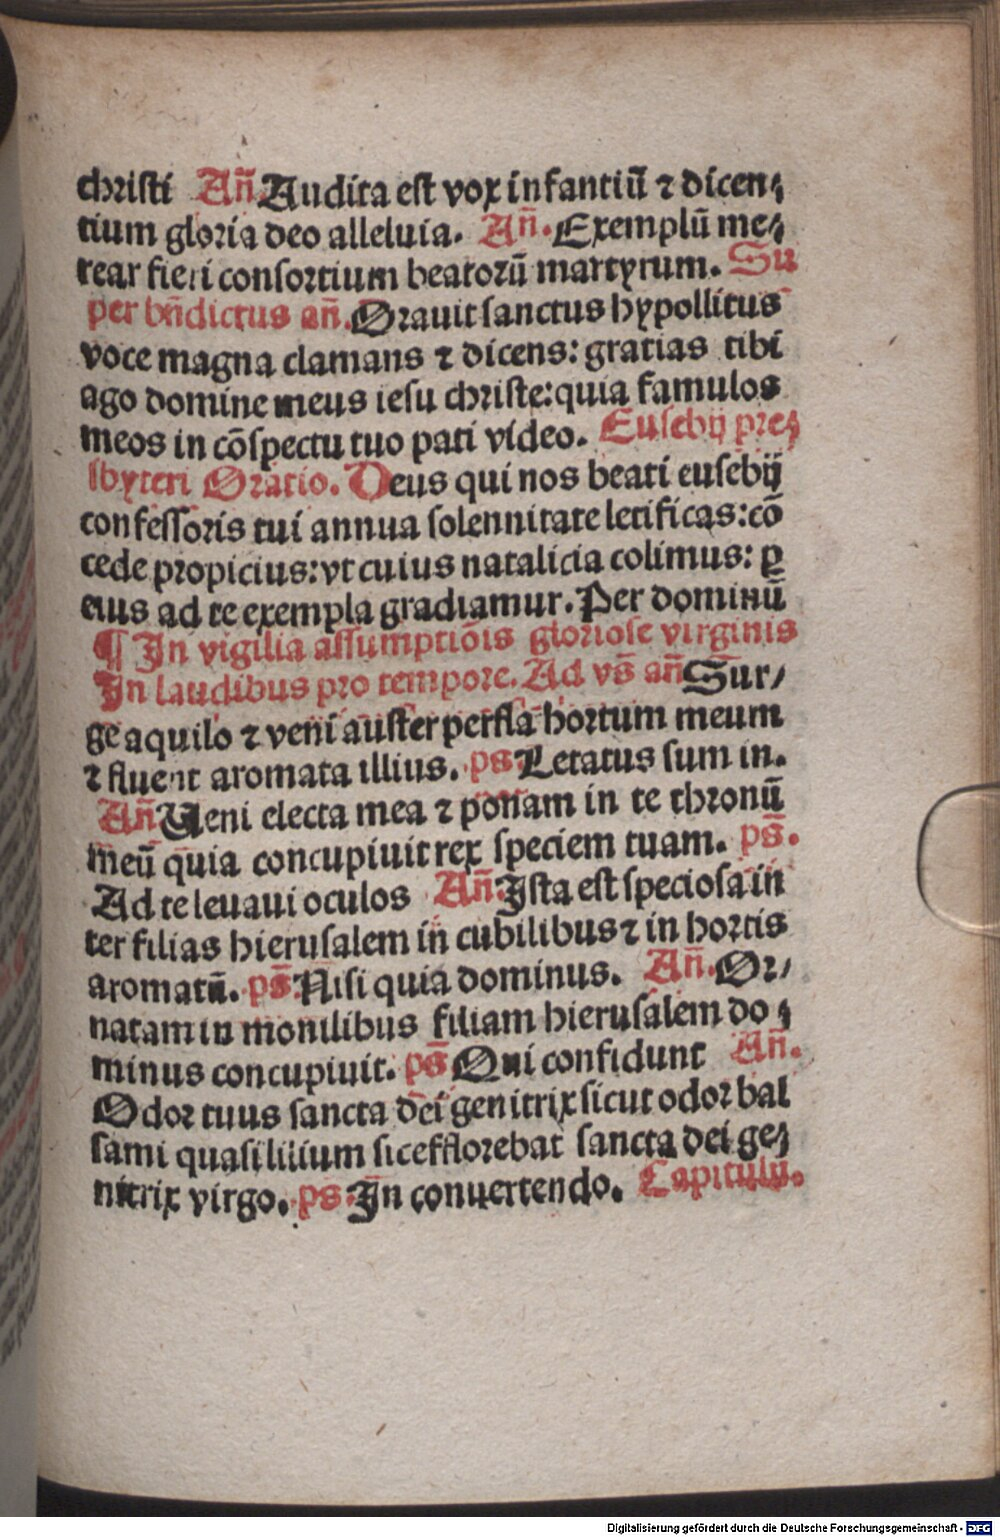 christi Añ Audita est vox infantiū ⁊ dicen⸗
tium gloria deo alleluia. Añ. Exemplū me⸗
rear fieri consortium beatorū martyrum. Su
per bñdictus añ. Orauit sanctus hypollitus
voce magna clamans ⁊ dicens: gratias tibi
ago domine meus iesu christe: quia famulos
meos in cōspectu tuo pati video. Eusebij pre⸗
sbyteri Oratio. Deus qui nos beati eusebij
confessoris tui annua solennitate letificas: cō
cede propicius: vt cuius natalicia colimus: ꝑ
eius ad te exempla gradiamur. Per dominū
¶ In vigilia assumptiōis gloriose virginis
In laudibus pro tempore. Ad vs̄ añ Sur/
ge aquilo ⁊ veni auster perfla hortum meum
⁊ fluent aromata illius. ps̄ Letatus sum in.
Añ Ueni electa mea ⁊ ponam in te thronū
meū quia concupiuit rex speciem tuam. ps̄.
Ad te leuaui oculos Añ. Ista est speciosa in
ter filias hierusalem in cubilibus ⁊ in hortis
aromatū. ps̄. Nisi quia dominus. Añ. Or/
natam in monilibus filiam hierusalem do⸗
minus concupiuit. ps̄ Qui confidunt Añ.
Odor tuus sancta dei genitrix sicut odor bal
sami quasi lilium sic efflorebat sancta dei ge⸗
nitrix virgo. ps̄ In conuertendo. Capitulū.
Digitalisierung gefördert durch die Deutsche Forschungsgemeinschaft - DFG